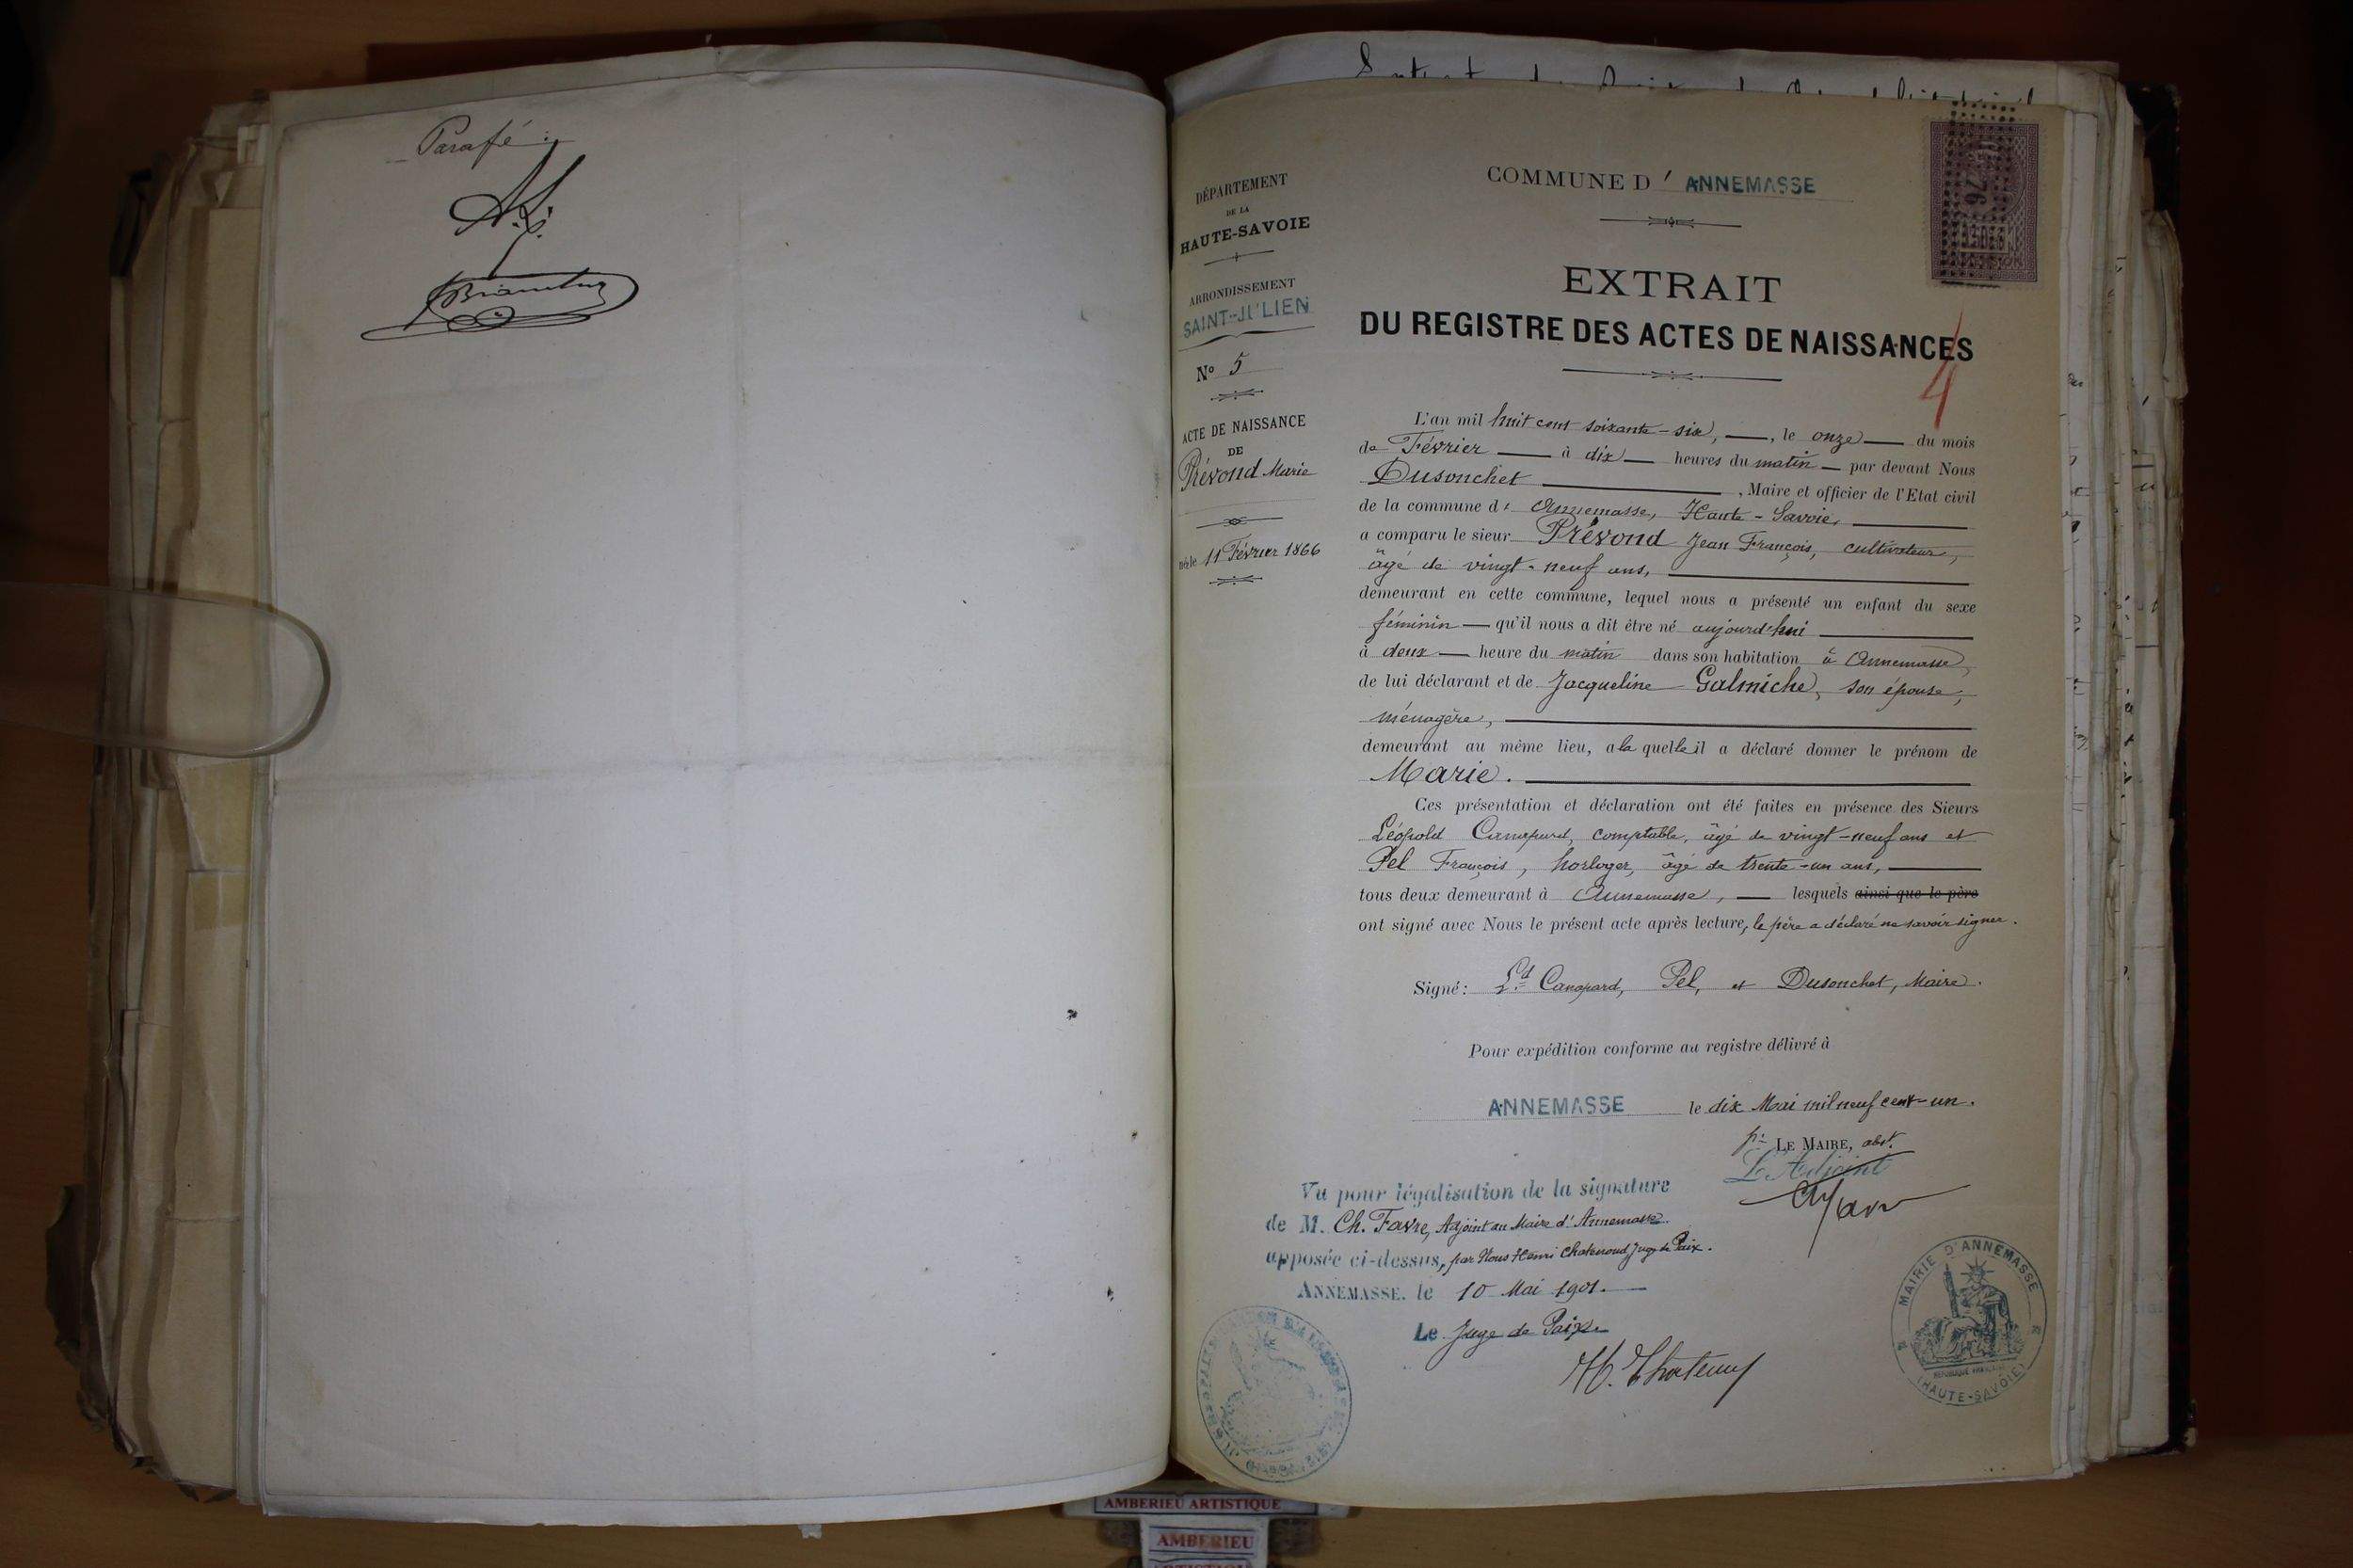 Parafé :
COMMUNE D' ANNEMASSE
DÉPARTEMENT
DE LA
HAUTE-SAVOIE
ARRONDISSEMENT
SAINT-JULIEN
No 5
ACTE DE NAISSANCE
DE
Prévond Marie
née le 11 Février 1866
EXTRAIT
DU REGISTRE DES ACTES DE NAISSANCES
4
L'an mil huit cent soixante-six, —, le onze — du mois
de Février — à dix — heures du matin — par devant Nous
Dusonchet —, Maire et officier de l'Etat civil
de la commune d' Annemasse, Haute-Savoie, —
a comparu le sieur Prévond Jean François, cultivateur,
âgé de vingt-neuf ans, —
demeurant en cette commune, lequel nous a présenté un enfant du sexe
féminin — qu'il nous a dit être né aujourd'hui —
à deux — heure du matin dans son habitation à Annemasse,
de lui déclarant et de Jacqueline Galmiche, son épouse,
ménagère, —
demeurant au même lieu, a la quelle il a déclaré donner le prénom de
Marie. —
Ces présentation et déclaration ont été faites en présence des Sieurs
Léopold Canapard, comptable, âgé de vingt-neuf ans et
Pel François, horloger, âgé de trente-un ans, —
tous deux demeurant à Annemasse, — lesquels ainsi que le père
ont signé avec Nous le présent acte après lecture, le père a déclaré ne savoir signer.
Signé : Ld Canapard, Pel, et Dusonchet, Maire.
Pour expédition conforme au registre délivré à
ANNEMASSE le dix Mai mil neuf cent-un.
pr LE MAIRE, abst.
L'Adjoint
Vu pour légalisation de la signature
de M. Ch. Favre, Adjoint au Maire d'Annemasse.
apposée ci-dessus, par Nous Henri Chatenoud Juge de Paix.
ANNEMASSE, le 10 Mai 1901. —
Le Juge de Paix
MAIRIE D'ANNEMASSE
(HAUTE-SAVOIE)
AMBERIEU ARTISTIQUE
AMBERIEU